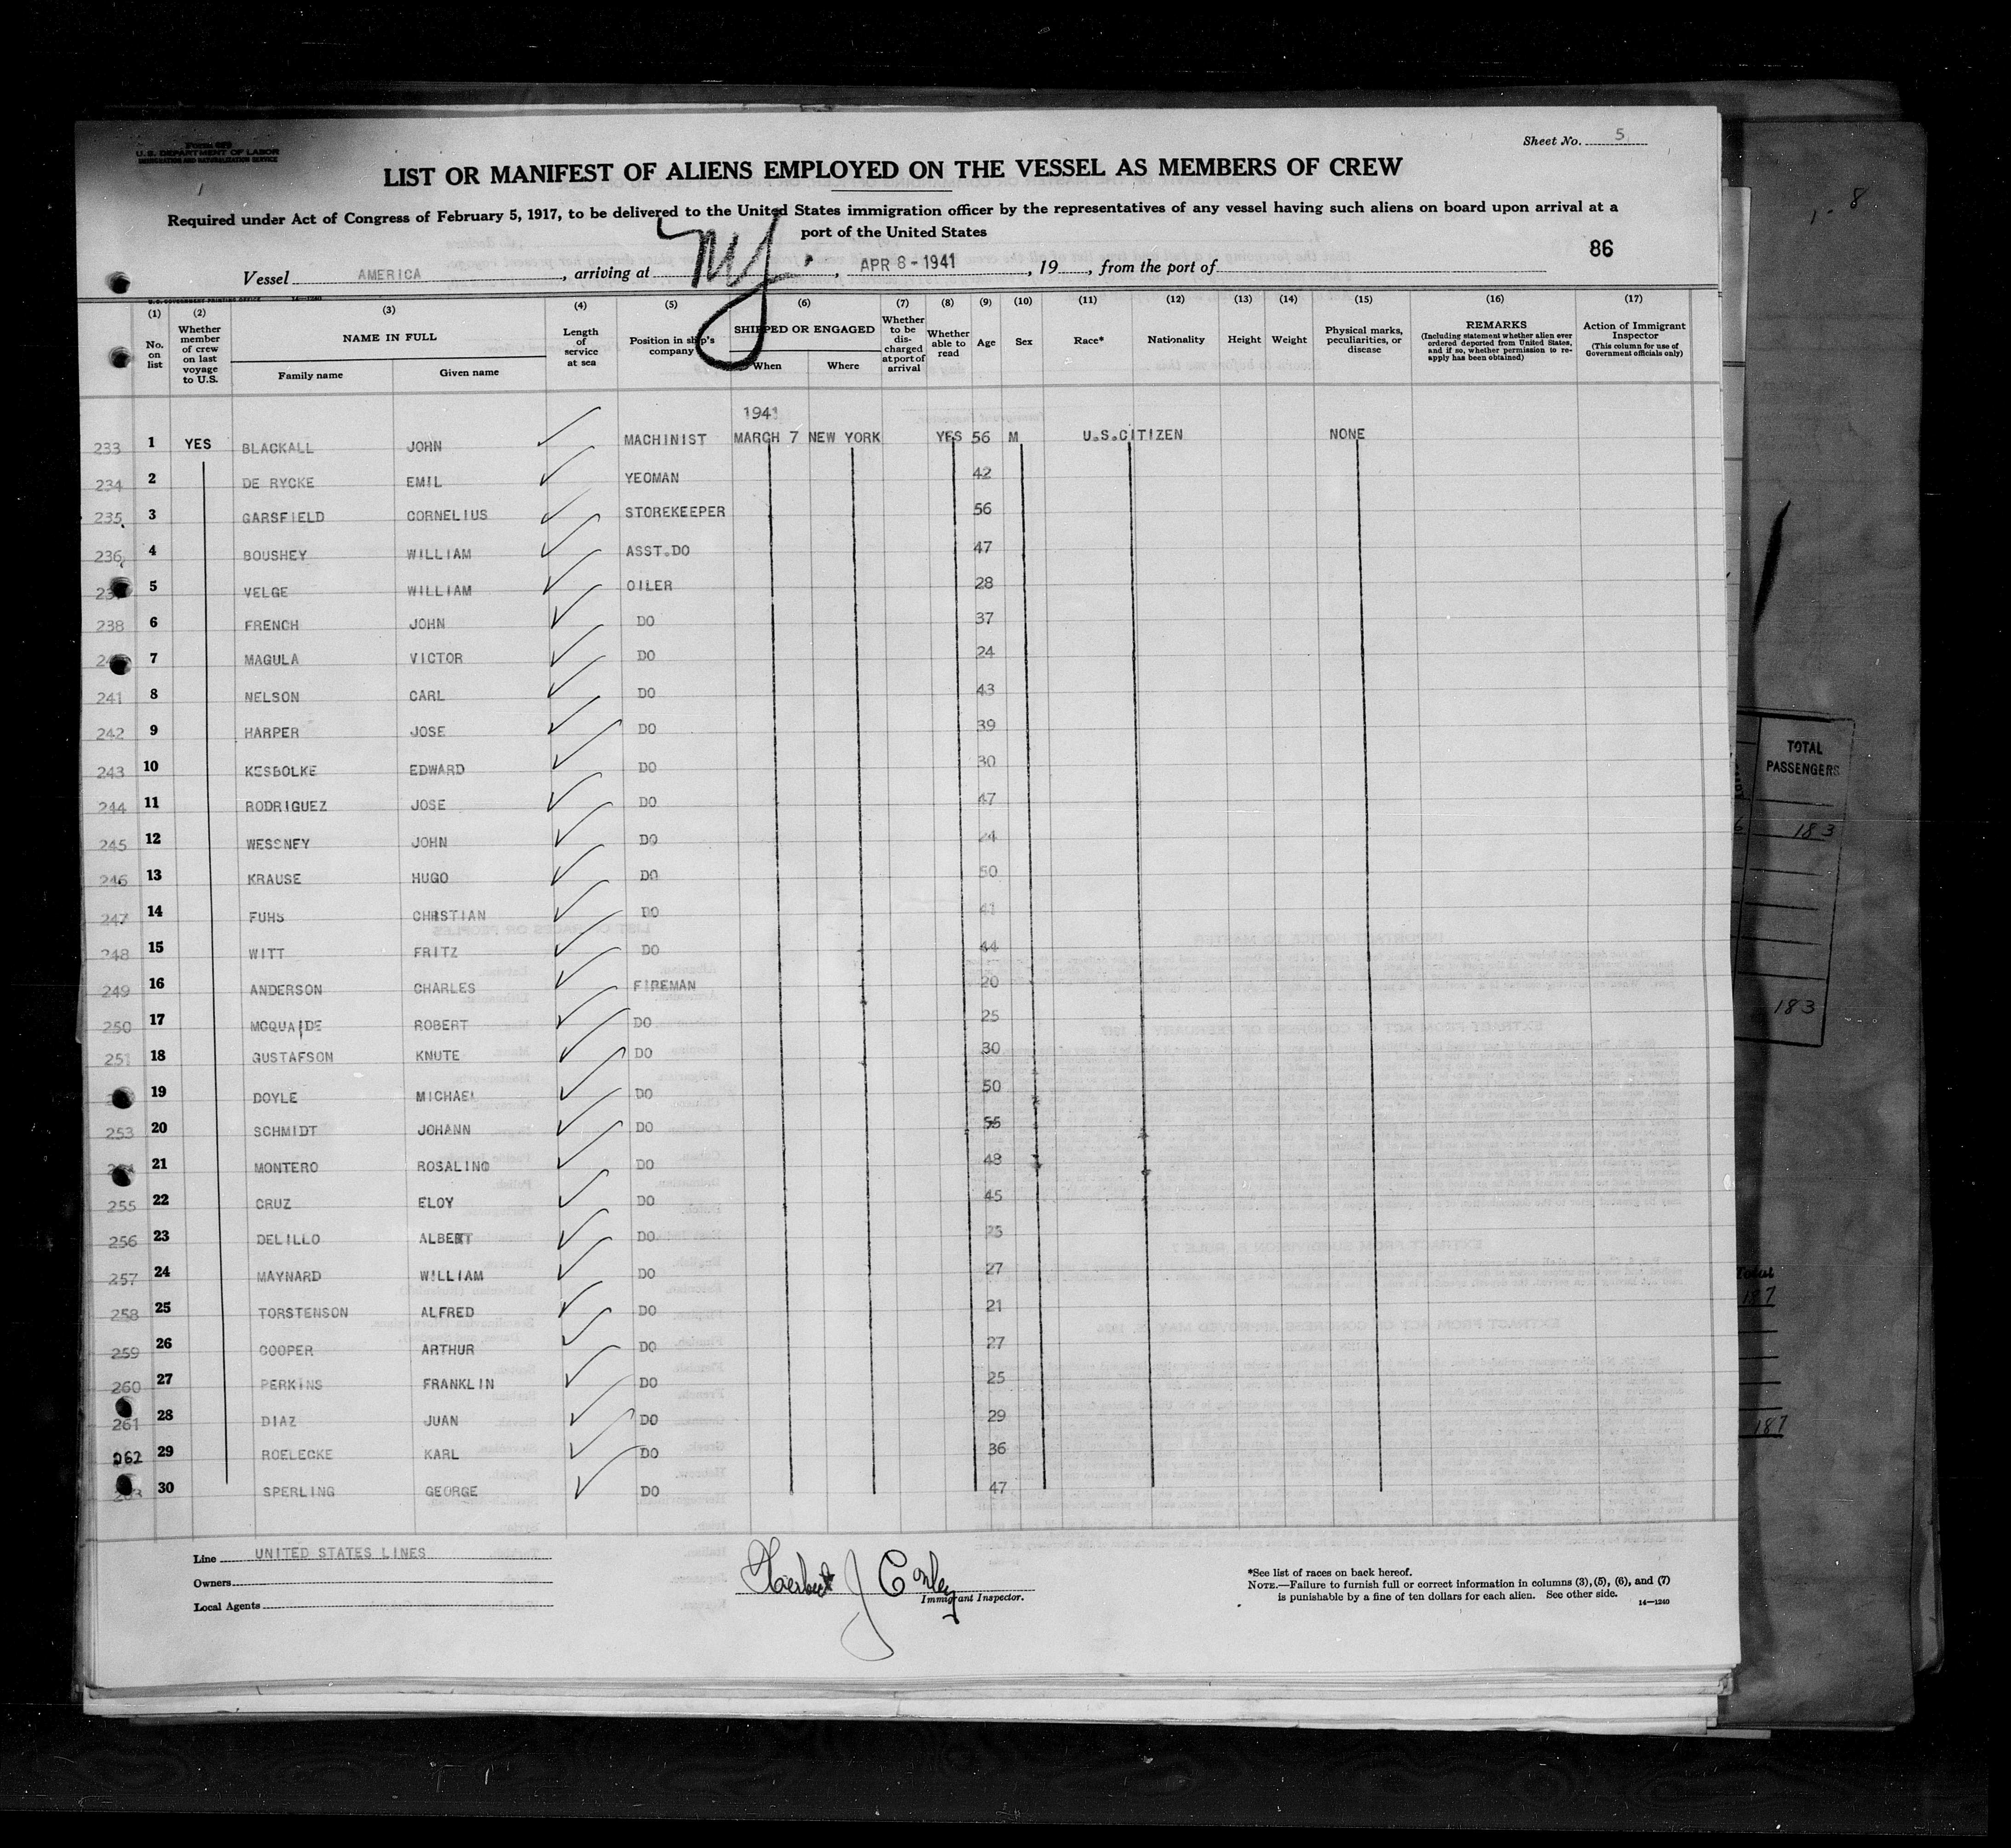 Form 689
U.S. DEPARTMENT OF LABOR
IMMIGRATION AND NATURALIZATION SERVICE
Sheet No. 5
LIST OR MANIFEST OF ALIENS EMPLOYED ON THE VESSEL AS MEMBERS OF CREW
Required under Act of Congress of February 5, 1917, to be delivered to the United States immigration officer by the representatives of any vessel having such aliens on board upon arrival at a
port of the United States
86
Vessel AMERICA, arriving at NY., APR 8-1941, 19, from the port of
U.S. GOVERNMENT PRINTING OFFICE 14-1240
(1) (2) (3) (4) (5) (6) (7) (8) (9) (10) (11) (12) (13) (14) (15) (16) (17)
No. on list
Whether member of crew on last voyage to U.S.
NAME IN FULL
Family name Given name
Length of service at sea
Position in ship's company
SHIPPED OR ENGAGED
When Where
Whether to be discharged at port of arrival
Whether able to read
Age
Sex
Race*
Nationality
Height
Weight
Physical marks, peculiarities, or disease
REMARKS
(Including statement whether alien ever ordered deported from United States, and if so, whether permission to reapply has been obtained)
Action of Immigrant Inspector
(This column for use of Government officials only)
1941
233 1 YES BLACKALL JOHN MACHINIST MARCH 7 NEW YORK YES 56 M U.S.CITIZEN NONE
234 2 DE RYCKE EMIL YEOMAN 42
235 3 GARSFIELD CORNELIUS STOREKEEPER 56
236 4 BOUSHEY WILLIAM ASST.DO 47
5 VELGE WILLIAM OILER 28
238 6 FRENCH JOHN DO 37
7 MAGULA VICTOR DO 24
241 8 NELSON CARL DO 43
242 9 HARPER JOSE DO 39
243 10 KESBOLKE EDWARD DO 30
244 11 RODRIGUEZ JOSE DO 47
245 12 WESSNEY JOHN DO 24
246 13 KRAUSE HUGO DO 50
247 14 FUHS CHRSTIAN DO 41
248 15 WITT FRITZ DO 44
249 16 ANDERSON CHARLES FIREMAN 20
250 17 MCQUAIDE ROBERT DO 25
251 18 GUSTAFSON KNUTE DO 30
19 DOYLE MICHAEL DO 50
253 20 SCHMIDT JOHANN DO 55
21 MONTERO ROSALINO DO 48
255 22 CRUZ ELOY DO 45
256 23 DELILLO ALBERT DO 25
257 24 MAYNARD WILLIAM DO 27
258 25 TORSTENSON ALFRED DO 21
259 26 COOPER ARTHUR DO 27
260 27 PERKINS FRANKLIN DO 25
261 28 DIAZ JUAN DO 29
262 29 ROELECKE KARL DO 36
30 SPERLING GEORGE DO 47
Line UNITED STATES LINES
Owners
Local Agents
Herbert J Conley
Immigrant Inspector.
*See list of races on back hereof.
NOTE.—Failure to furnish full or correct information in columns (3), (5), (6), and (7)
is punishable by a fine of ten dollars for each alien. See other side.
14-1240
TOTAL
PASSENGERS
183
183
Total
187
187